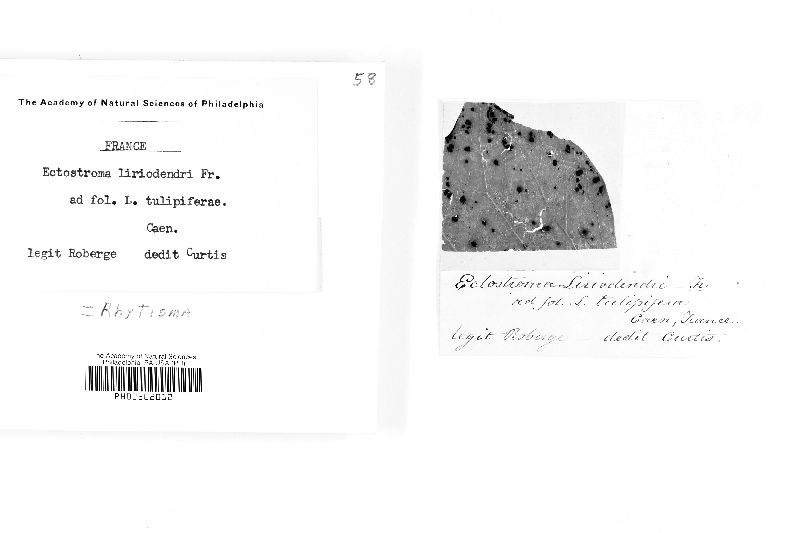 58
The Academy of Natural Sciences of Philadelphia
FRANCE
Ectostroma liriodendri Fr.
ad fol. L. tulipiferae.
Caen.
legit Roberge dedit Curtis
= Rhytisma
The Academy of Natural Sciences
Philadelphia, PA USA (PH)
Ectostroma Liriodendri Fr.
ad fol. L. tulipifera
Caen, France.
legit Roberge — dedit Curtis.